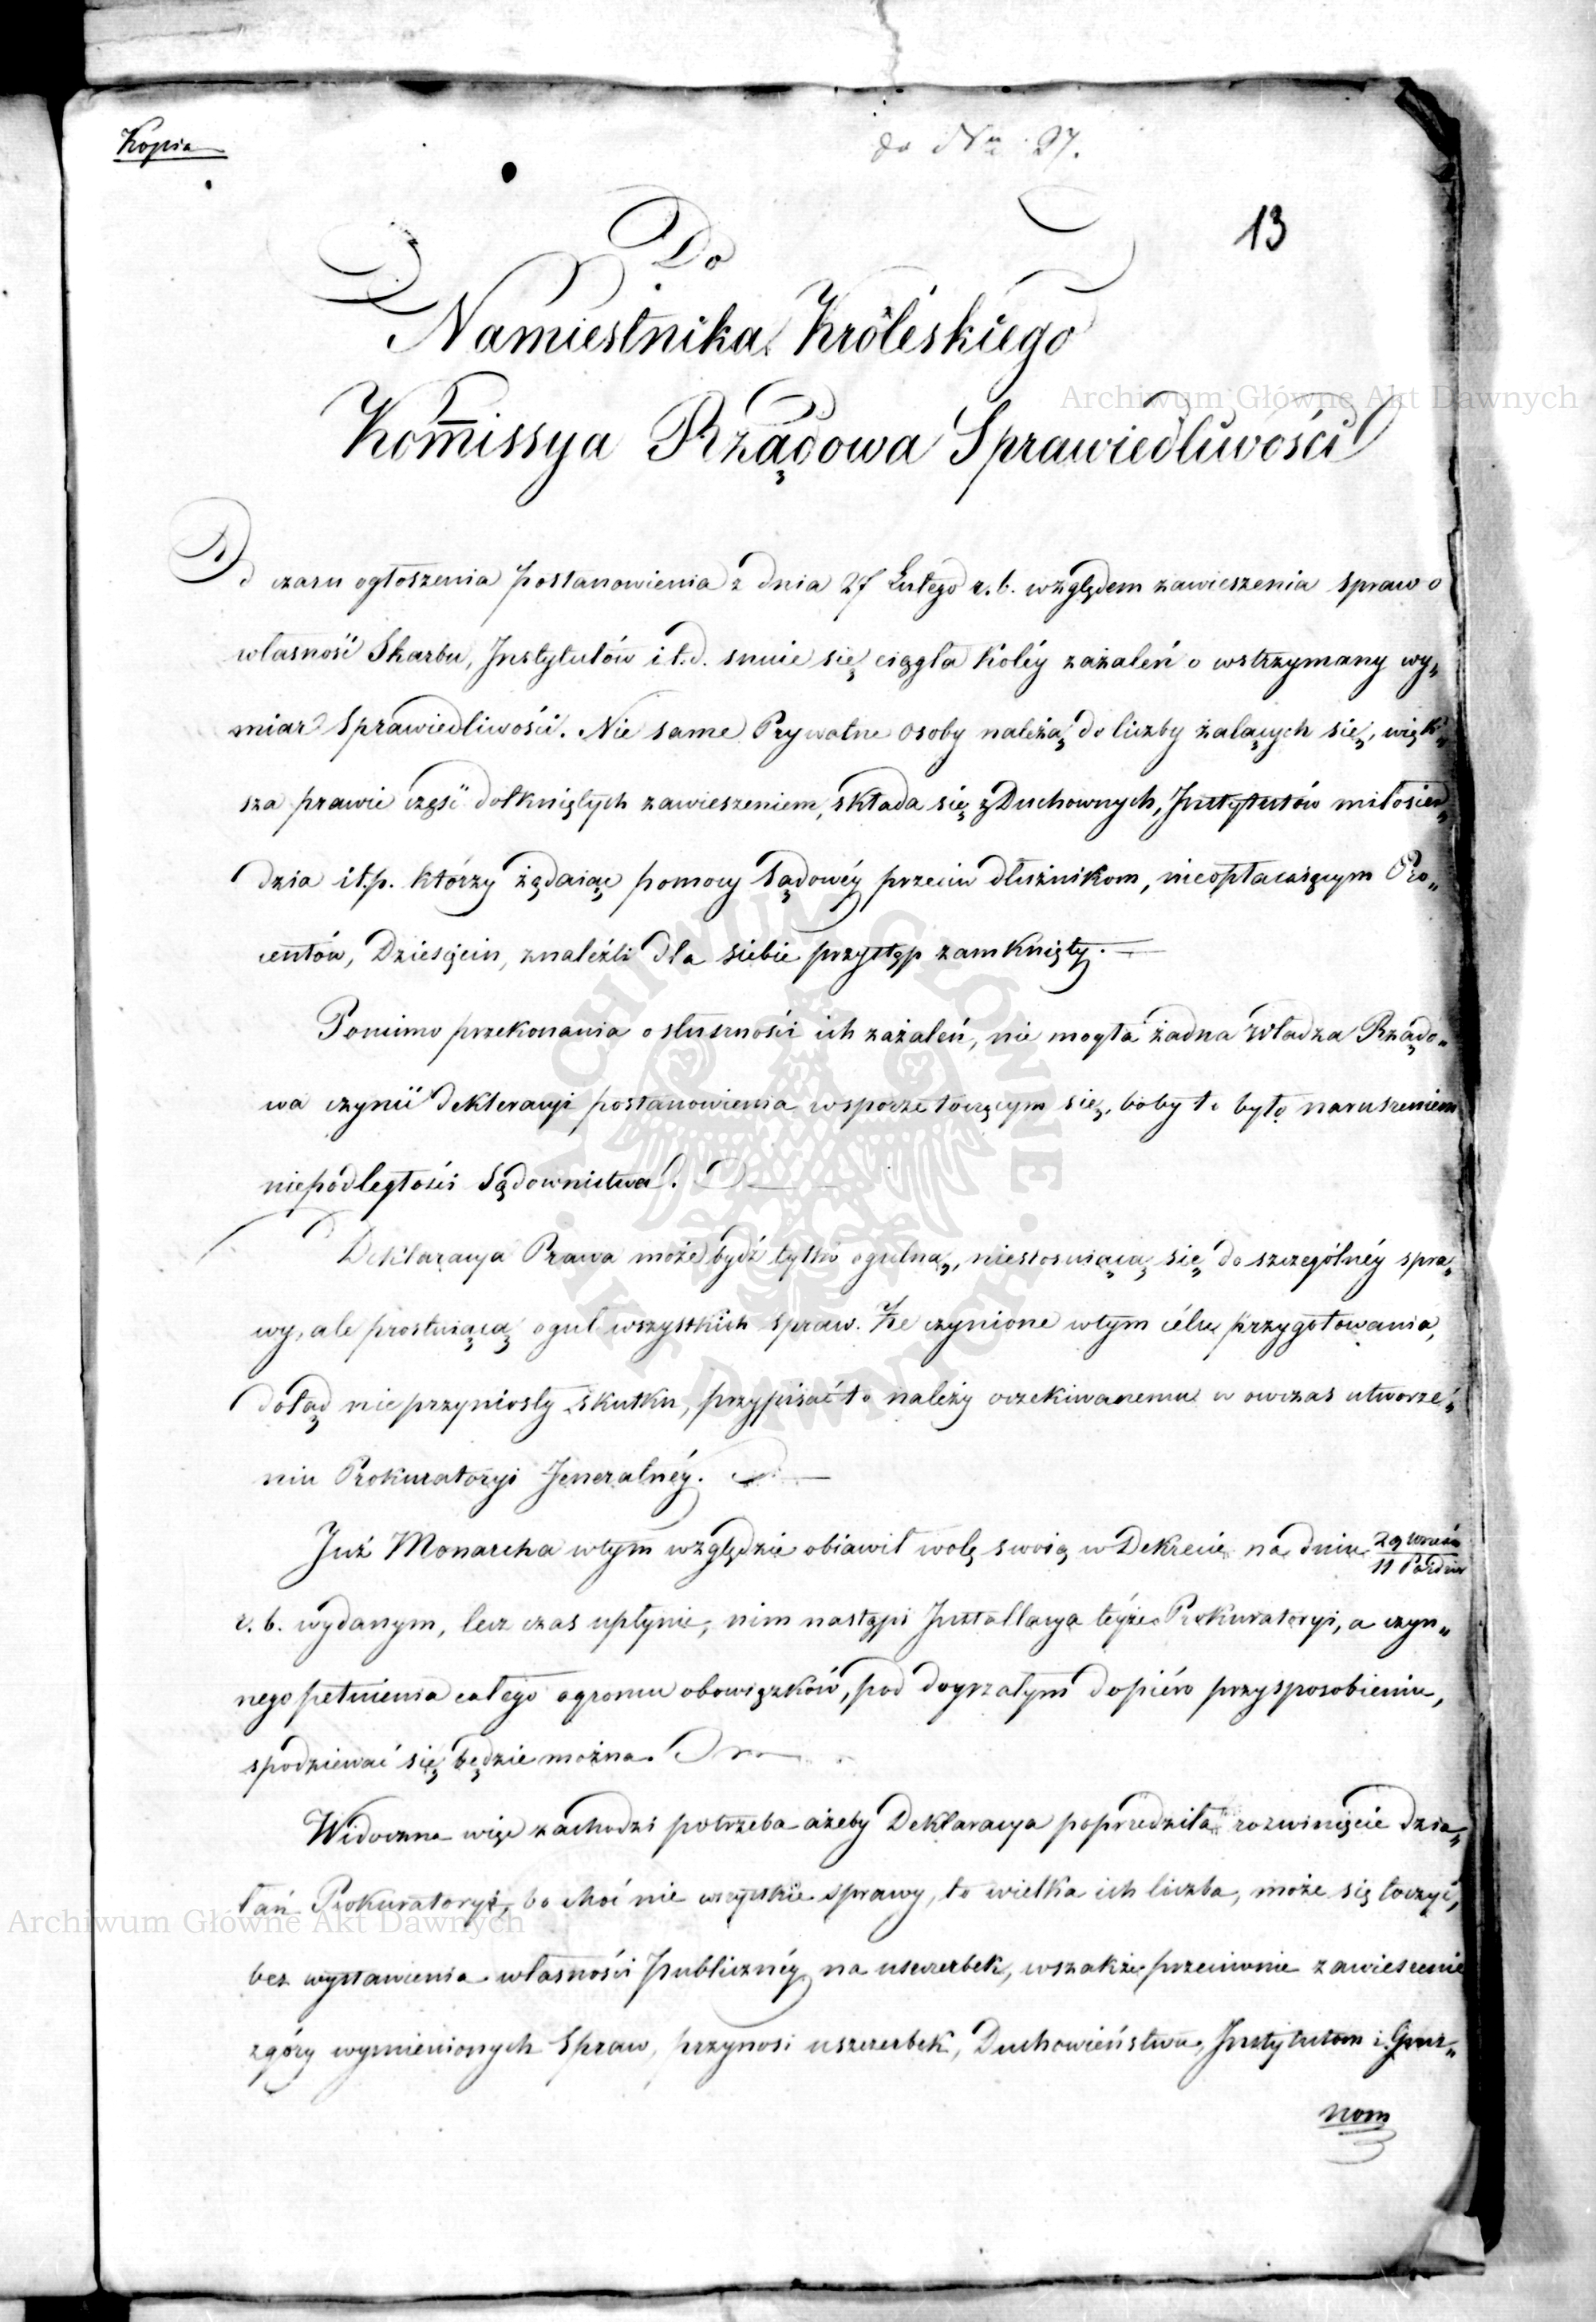 Kopia
do Nru 27.
13
Do
Namiestnika Króleskiego
Kom̄issya Rządowa Sprawiedliwości
Archiwum Główne Akt Dawnych
Od czasu ogłoszenia postanowienia z dnia 27 Lutego r. b. względem zawieszenia spraw o
własność Skarbu, Instytutów i t. d. snuie się ciągła koléy zażaleń o wstrzymany wy„
miar Sprawiedliwości. Nie same Prywatne osoby należą do liczby żalących się, więk„
sza prawie część dotkniętych zawieszeniem, składa się z Duchownych, Instytutów miłosier„
dzia it.p. którzy żądaiąc pomocy Sądowéy przeciw dłużnikom, nieopłacaiącym Pro„
centów, Dziesięcin, znaleźli dla siebie przystęp zamknięty.
Pomimo przekonania o słuszności ich zażaleń, nie mogła żadna Władza Rządo„
wa czynić deklaracyi postanowienia w sporze toczącym się, boby to było naruszeniem
niepodległości Sądownictwa.
Deklaracya Prawa może bydź tylko ogulną, niestosuiącą się do szczególnéy spra„
wy, ale prostuiącą ogul wszystkich spraw. Że czynione wtym célu przygotowania,
dotąd nie przyniosły skutku, przypisać to należy oczekiwanemu w owczas utworze„
niu Prokuratoryi Jeneralnéy.
Już Monarcha wtym względzie obiawił wolę swoią w Dekrecie na dniu 29 Wrześn
11 Paździer
r. b. wydanym, lecz czas upłynie, nim nastąpi Installacya téyże Prokuratoryi, a czyn„
nego pełnienia całego ogromu obowiązków, pod doyrzałym dopiéro przysposobieniu,
spodziewać się będzie można.
Widoczna więc zachodzi potrzeba ażeby Deklaracya poprzedziła rozwinięcie dzia„
łań Prokuratoryi, bo choć nie wszystkie sprawy, to wielka ich liczba, może się toczyć,
Archiwum Główne Akt Dawnych
bez wystawienia własności publicznéy na uszczerbek, wszakże przeciwnie zawieszenie
zgóry wymienionych Spraw, przynosi uszczerbek, Duchowieństwu, Instytutom i Gmi„
nom